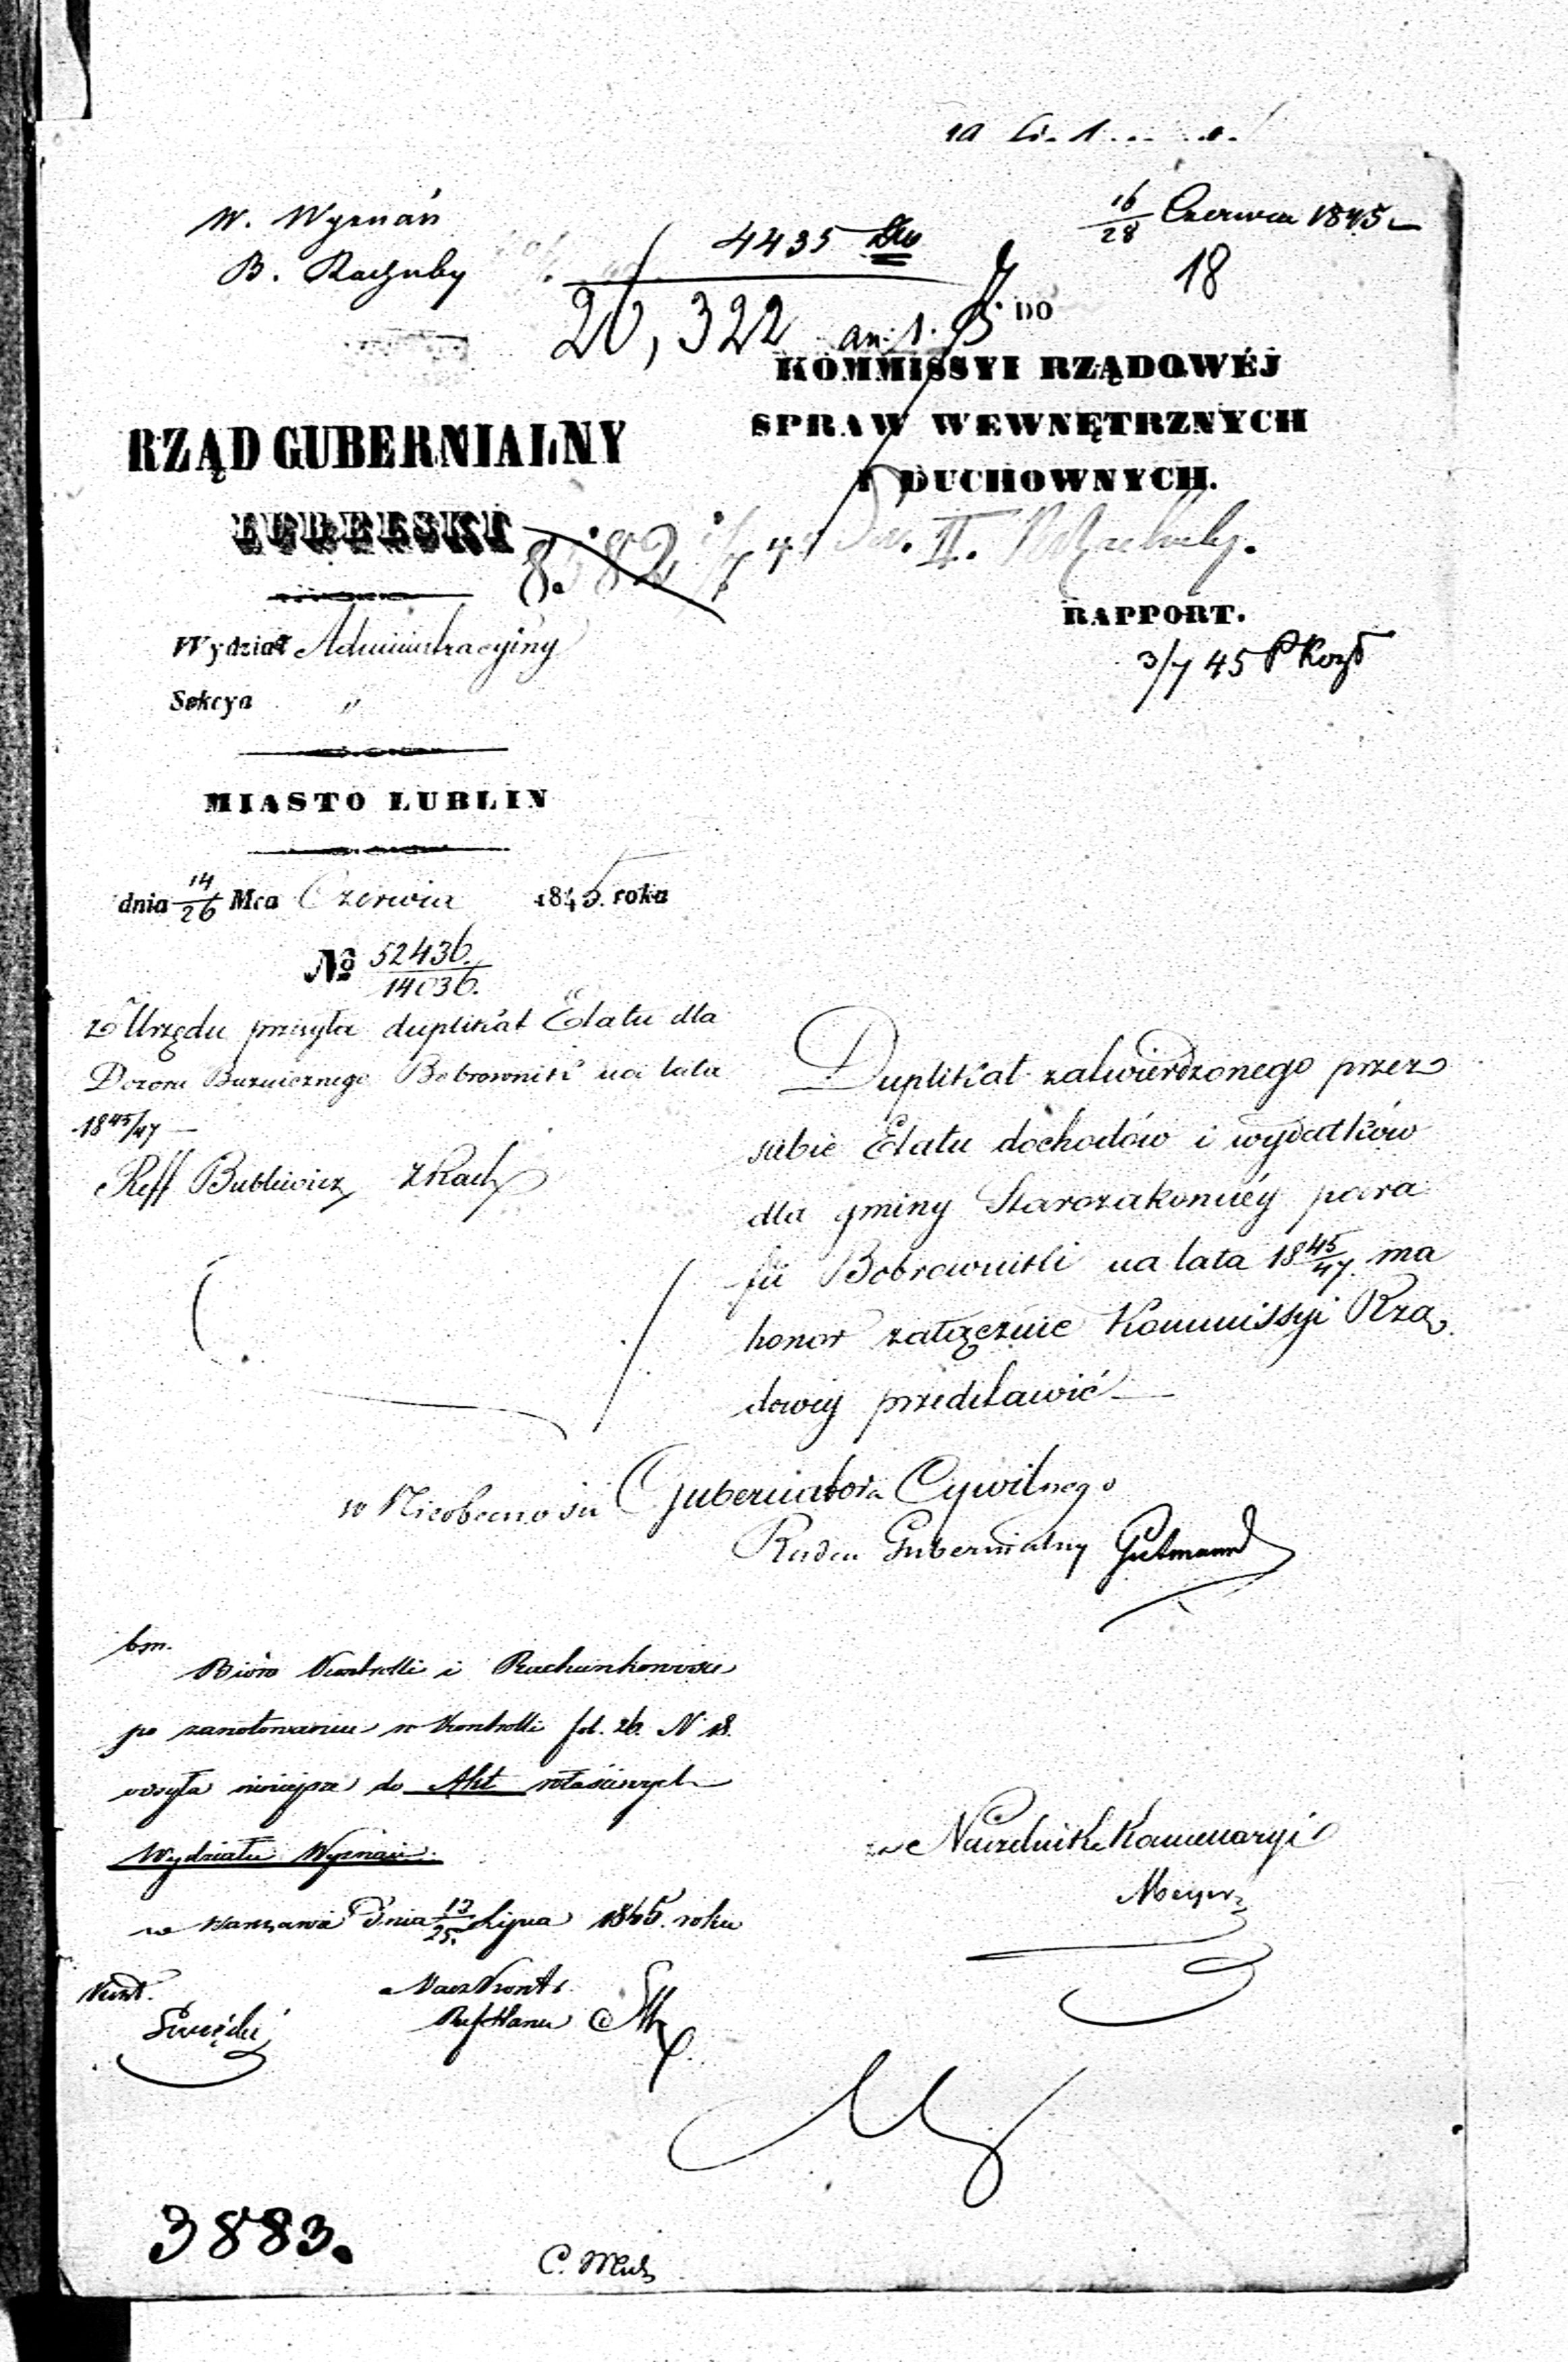 W. Wyznań
B. Rachuby
4435
16/28 Czerwca 1845
18
26,322
DO
KOMMISSYI RZĄDOWÉJ
SPRAW WEWNĘTRZNYCH
I DUCHOWNYCH.
RZĄD GUBERNIALNY
LUBELSKI
II.
RAPPORT.
3/7 45
Wydział Administracyjny
Sekcya "
MIASTO LUBLIN
dnia 14/26 Mca Czerwca 1845. roku
No 52436./14036.
Urzędu przesyła duplikat Etatu dla
Dozoru Bużnicznego Bobrowniki na lata
1845/47
Duplikat zatwierdzonego przez
siebie Etatu dochodów i wydatków
dla gminy Starozakonnéy para
fii Bobrowniki na lata 1845/47. ma
honor załącznie Kommissyi Rzą
dowéy przedstawić
w Nieobecności Gubernatora Cywilnego
Radca Gubernialny Gutmann
bm.
Bióro Kontrolli i Rachunkowości
po zanotowaniu w Kontrolli fol. 26. N 18.
odsyła niniejsze do Akt właściwych
Wydziału Wyznań.
w Warszawie Dnia 13/25. Lipca 1845. roku
Naczelnik Kancellaryi
Meyer
3883.